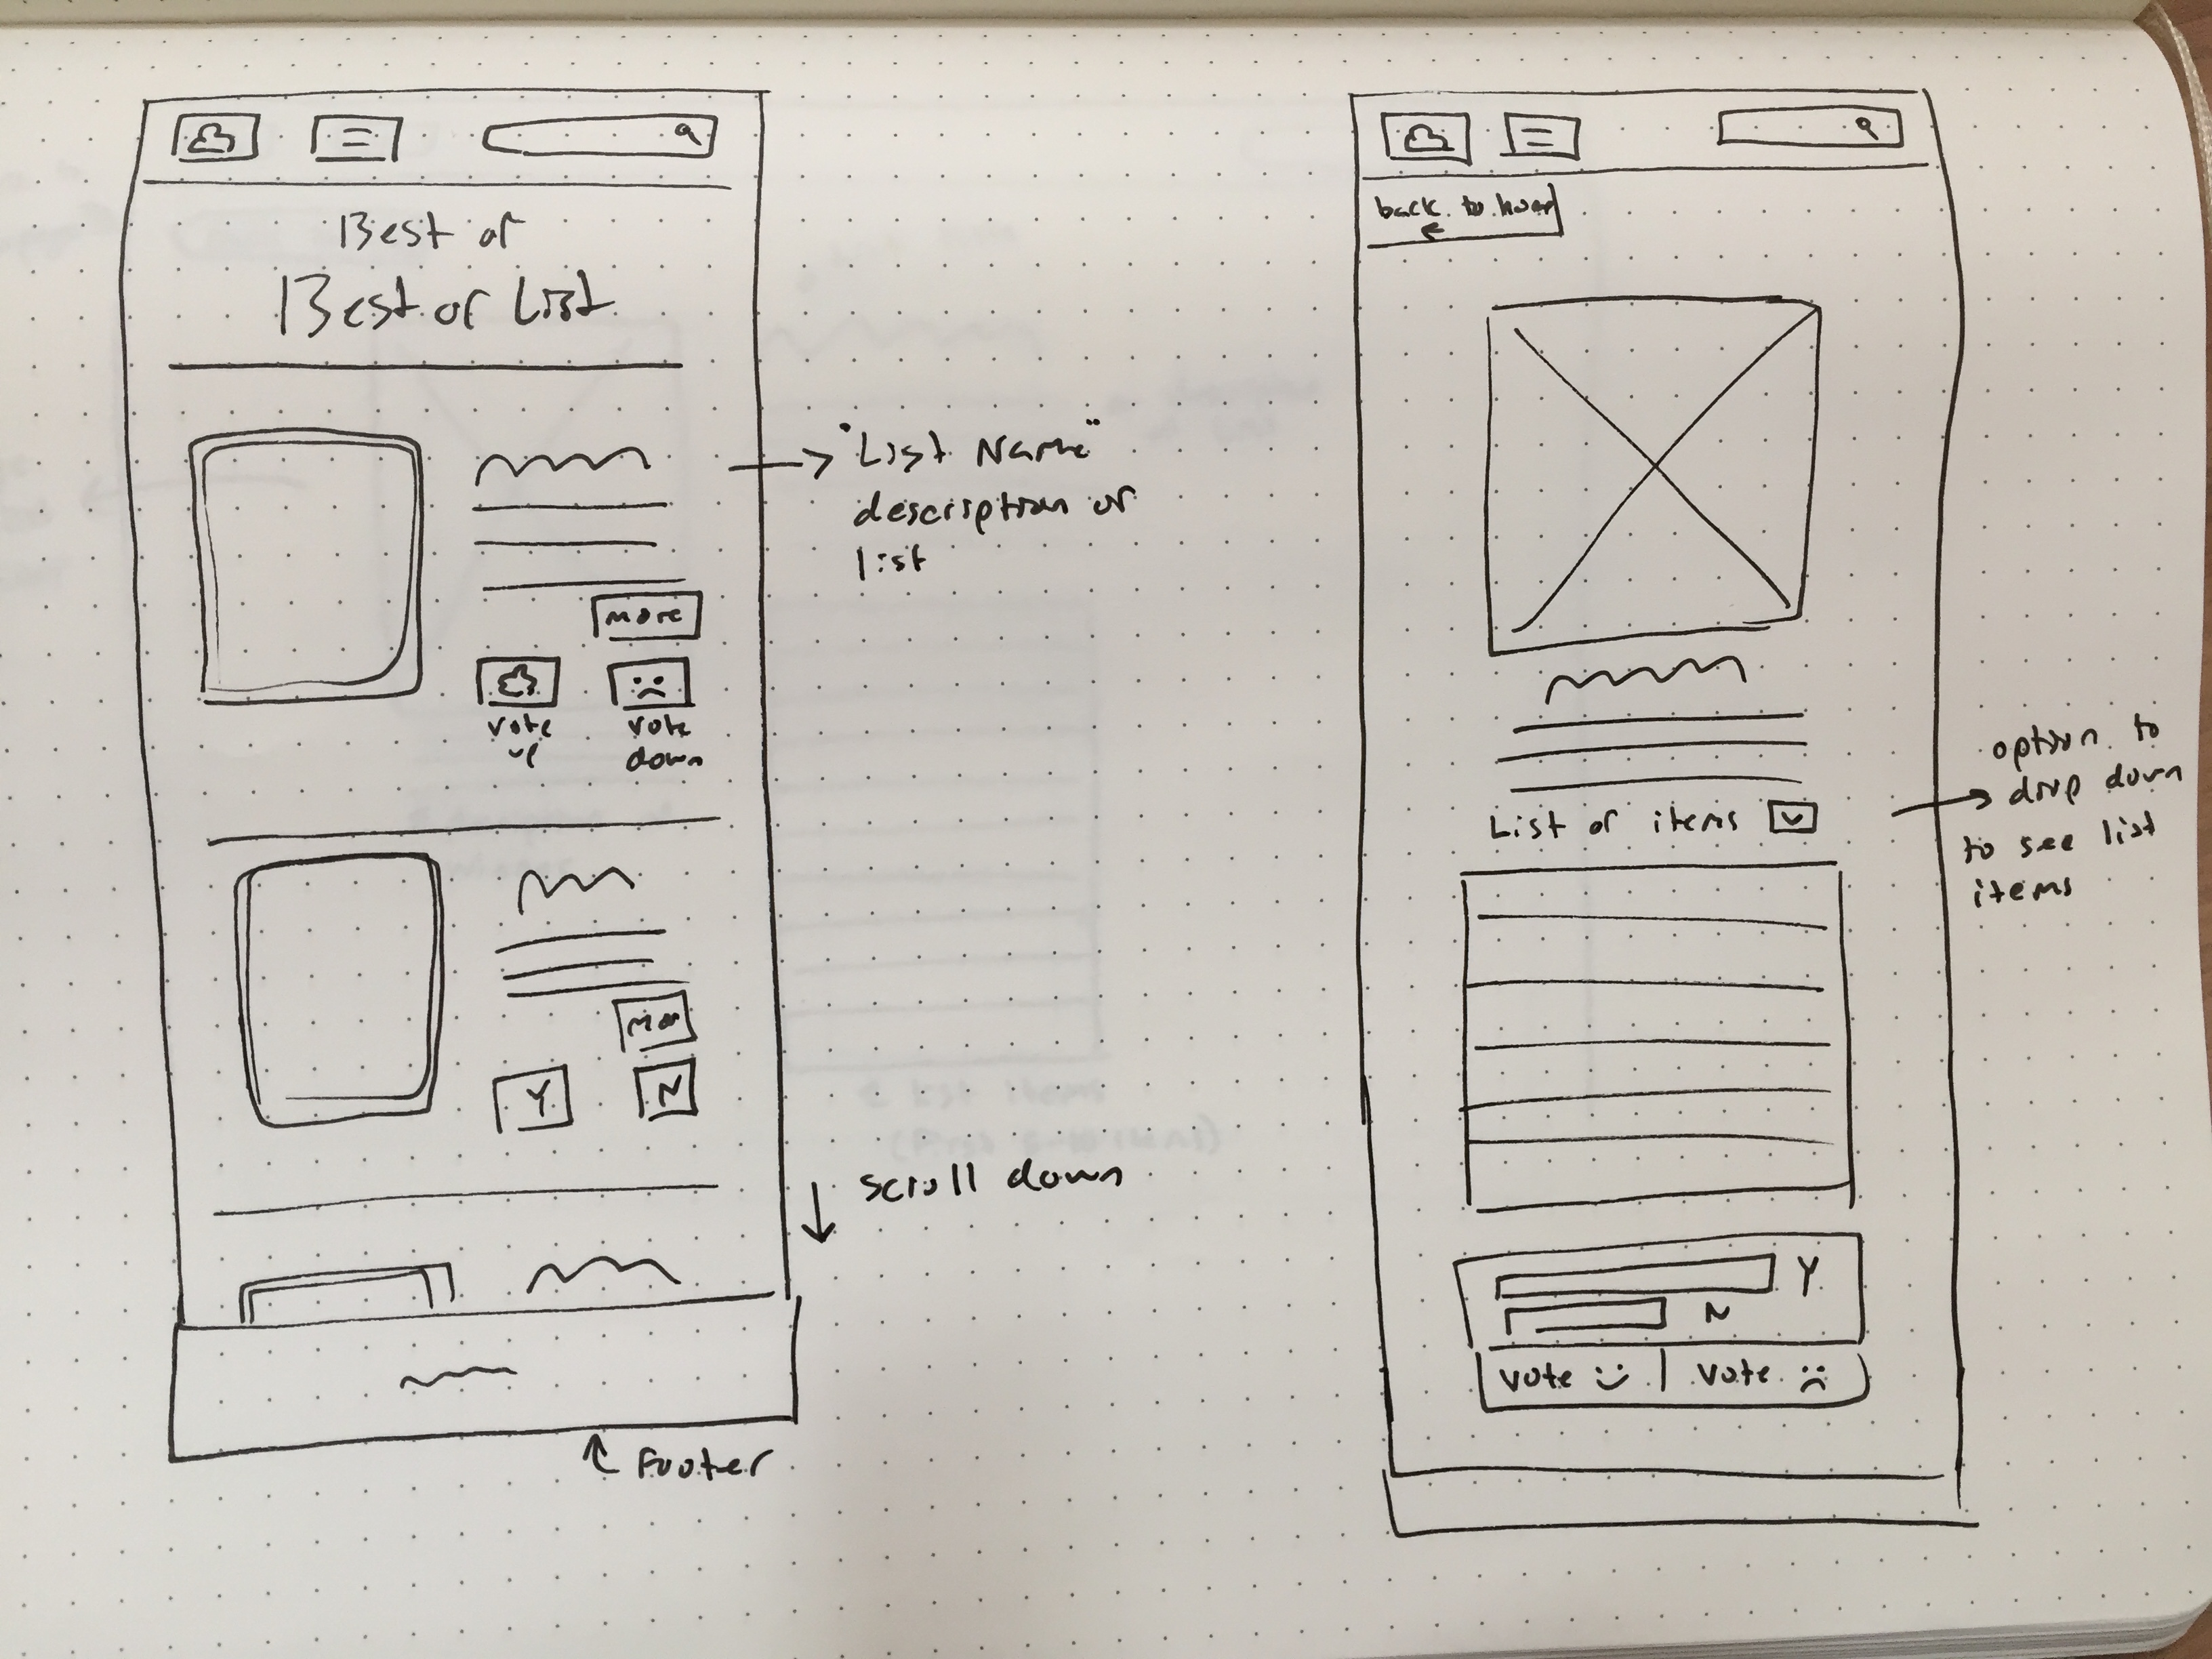 Best of
Best of List
"List Name"
description of
list
more
vote
up
vote
down
Y
N
scroll down
Footer
back to home
List of items
option to
drop down
to see list
items
Y
N
vote
vote